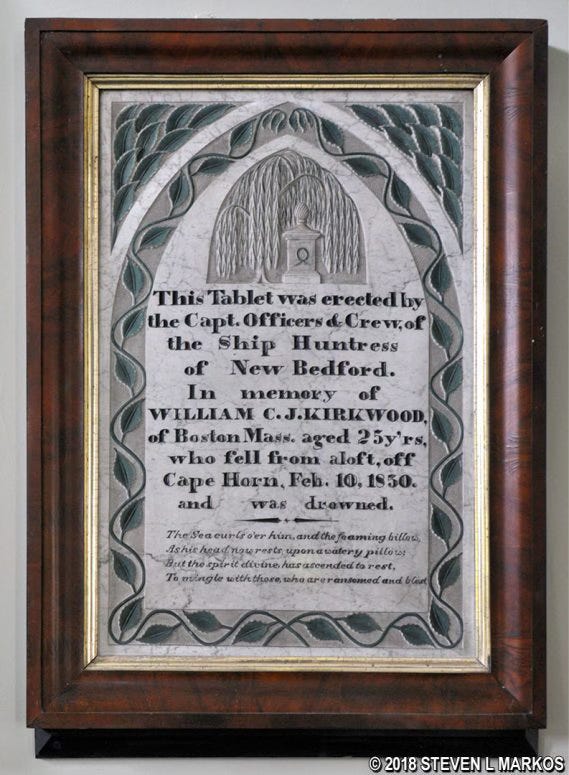 This Tablet was erected by
the Capt. Officers & Crew, of
the Ship Huntress
of New Bedford.
In memory of
WILLIAM C. J. KIRKWOOD,
of Boston Mass. aged 25 y'rs,
who fell from aloft, off
Cape Horn, Feb. 10, 1850.
and was drowned.
The Sea curls o'er him, and the foaming billow,
As his head now rests, upon a watery pillow;
But the spirit divine, has ascended to rest,
To mingle with those, who are ransomed and blest
© 2018 STEVEN L MARKOS